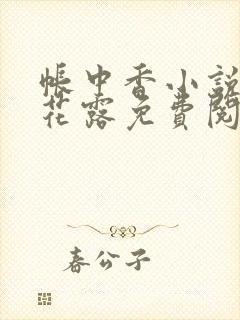 帳中香小說
花露免費閱
春公子